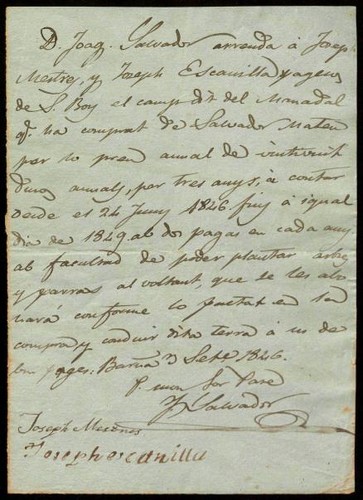 D. Joaq. Salvador arrenda á Joseph
Mestres, y Joseph Escanilla pagesos
de S. Boy el camp dit del Mamadal
q. ha comprat de Salvador Mateu
per lo preu anual de vintivuit
duros anuals, per tres anys, á contar
desde el 24 Juny 1846 fins á igual
dia de 1849 ab dos pagas en cada any
ab facultad de poder plantar arbres
y parras al voltant, que se les abo
nara conforme lo pactat en sa
compra y conduir dita terra á us de
bon pages: Barna 3 Setre 1846.
P. mon Sor Pare
J. Salvador
Joseph Mestres
Joseph escanilla